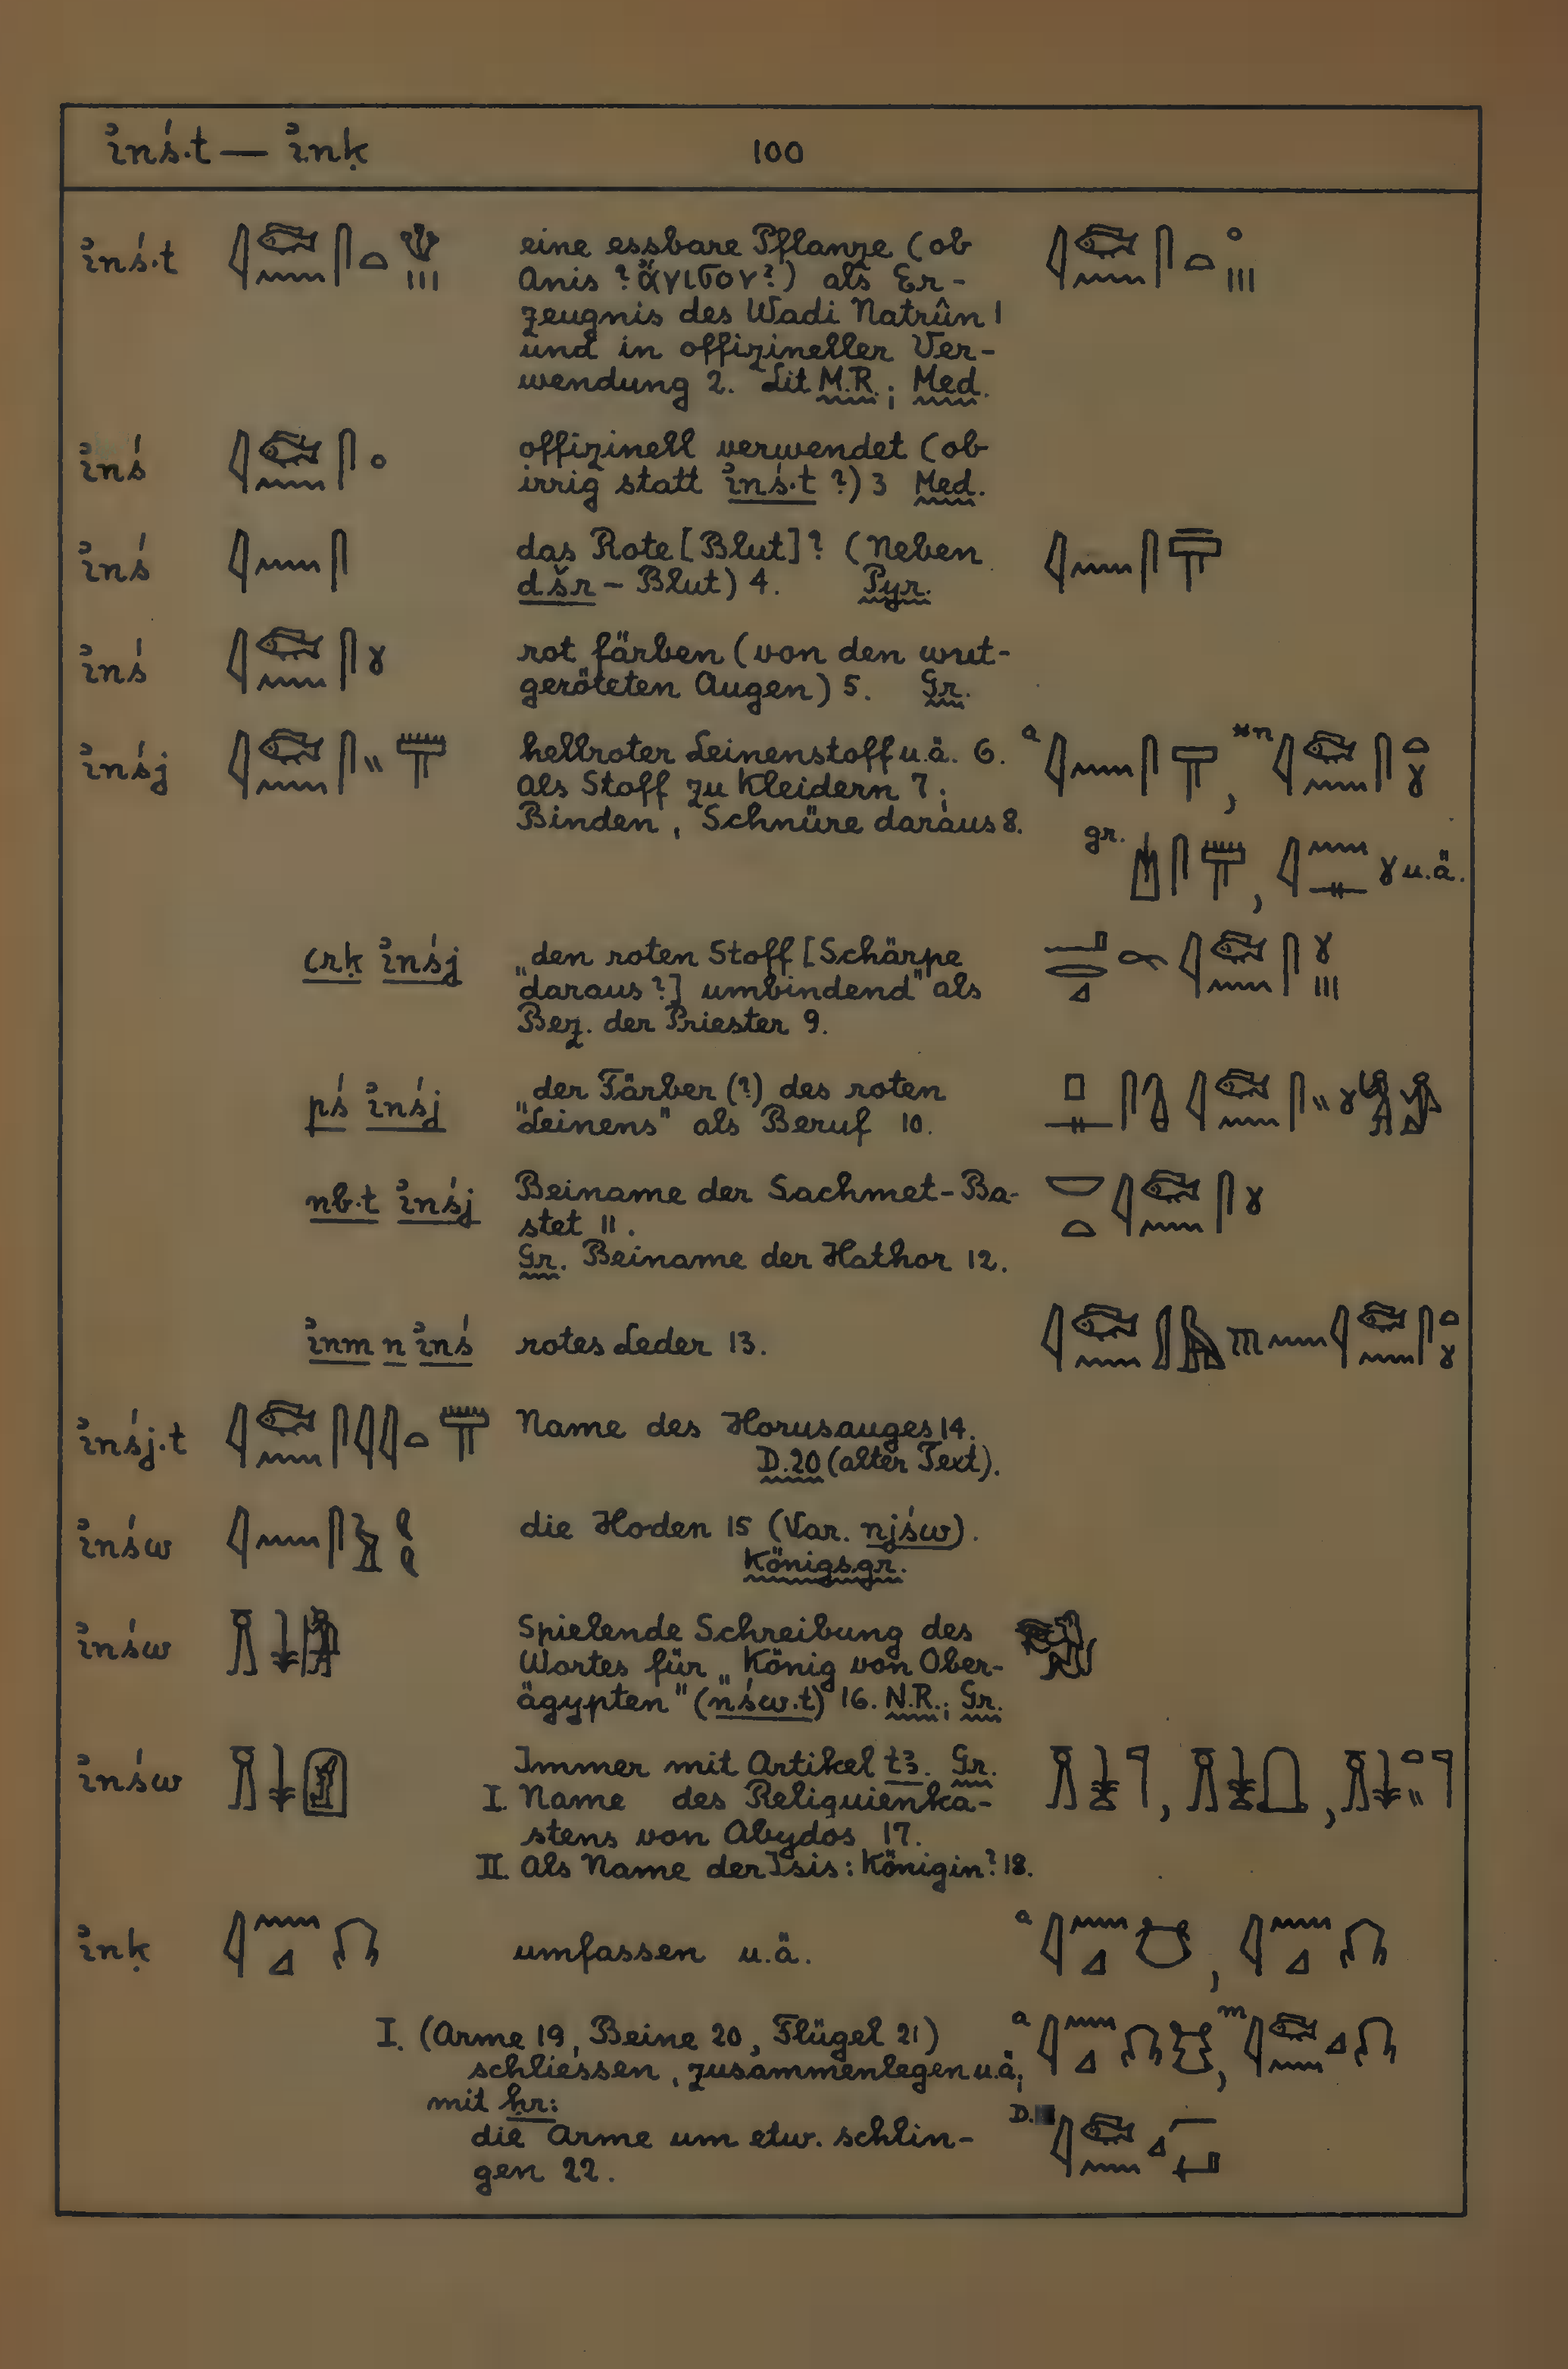 ỉnś.t — ỉnḳ 100
ỉnś.t eine essbare Pflanze (ob
Anis? ἄνισον?) als Er-
zeugnis des Wadi Natrûn 1
und in offizineller Ver-
wendung 2. Lit M.R.; Med.
ỉnś offizinell verwendet (ob
irrig statt ỉnś.t ?) 3 Med.
ỉnś das Rote [Blut]? (neben
dšr - Blut) 4. Pyr.
ỉnś rot färben (von den wut-
geröteten Augen) 5. Gr.
ỉnśj hellroter Leinenstoff u.ä. 6. a , *n
als Stoff zu Kleidern 7;
Binden, Schnüre daraus 8. gr. , u.ä.
ꜥrḳ ỉnśj „den roten Stoff [Schärpe
daraus?] umbindend" als
Bez. der Priester 9.
pś ỉnśj „der Färber (?) des roten
Leinens" als Beruf 10.
nb.t ỉnśj Beiname der Sachmet-Ba-
stet 11.
Gr. Beiname der Hathor 12.
ỉnm n ỉnś rotes Leder 13.
ỉnśj.t Name des Horusauges 14.
D.20 (alter Text).
ỉnśw die Hoden 15 (Var. njśw).
Königsgr.
ỉnśw Spielende Schreibung des
Wortes für „König von Ober-
ägypten" (nśw.t) 16. N.R.; Gr.
ỉnśw Immer mit Artikel tꜣ. Gr.
I. Name des Reliquienka-
stens von Abydos 17.
II. Als Name der Isis: Königin? 18.
ỉnḳ umfassen u.ä. a ,
I. (Arme 19, Beine 20, Flügel 21) a , m
schliessen, zusammenlegen u.ä;
mit ḥr: D.
die Arme um etw. schlin-
gen 22.